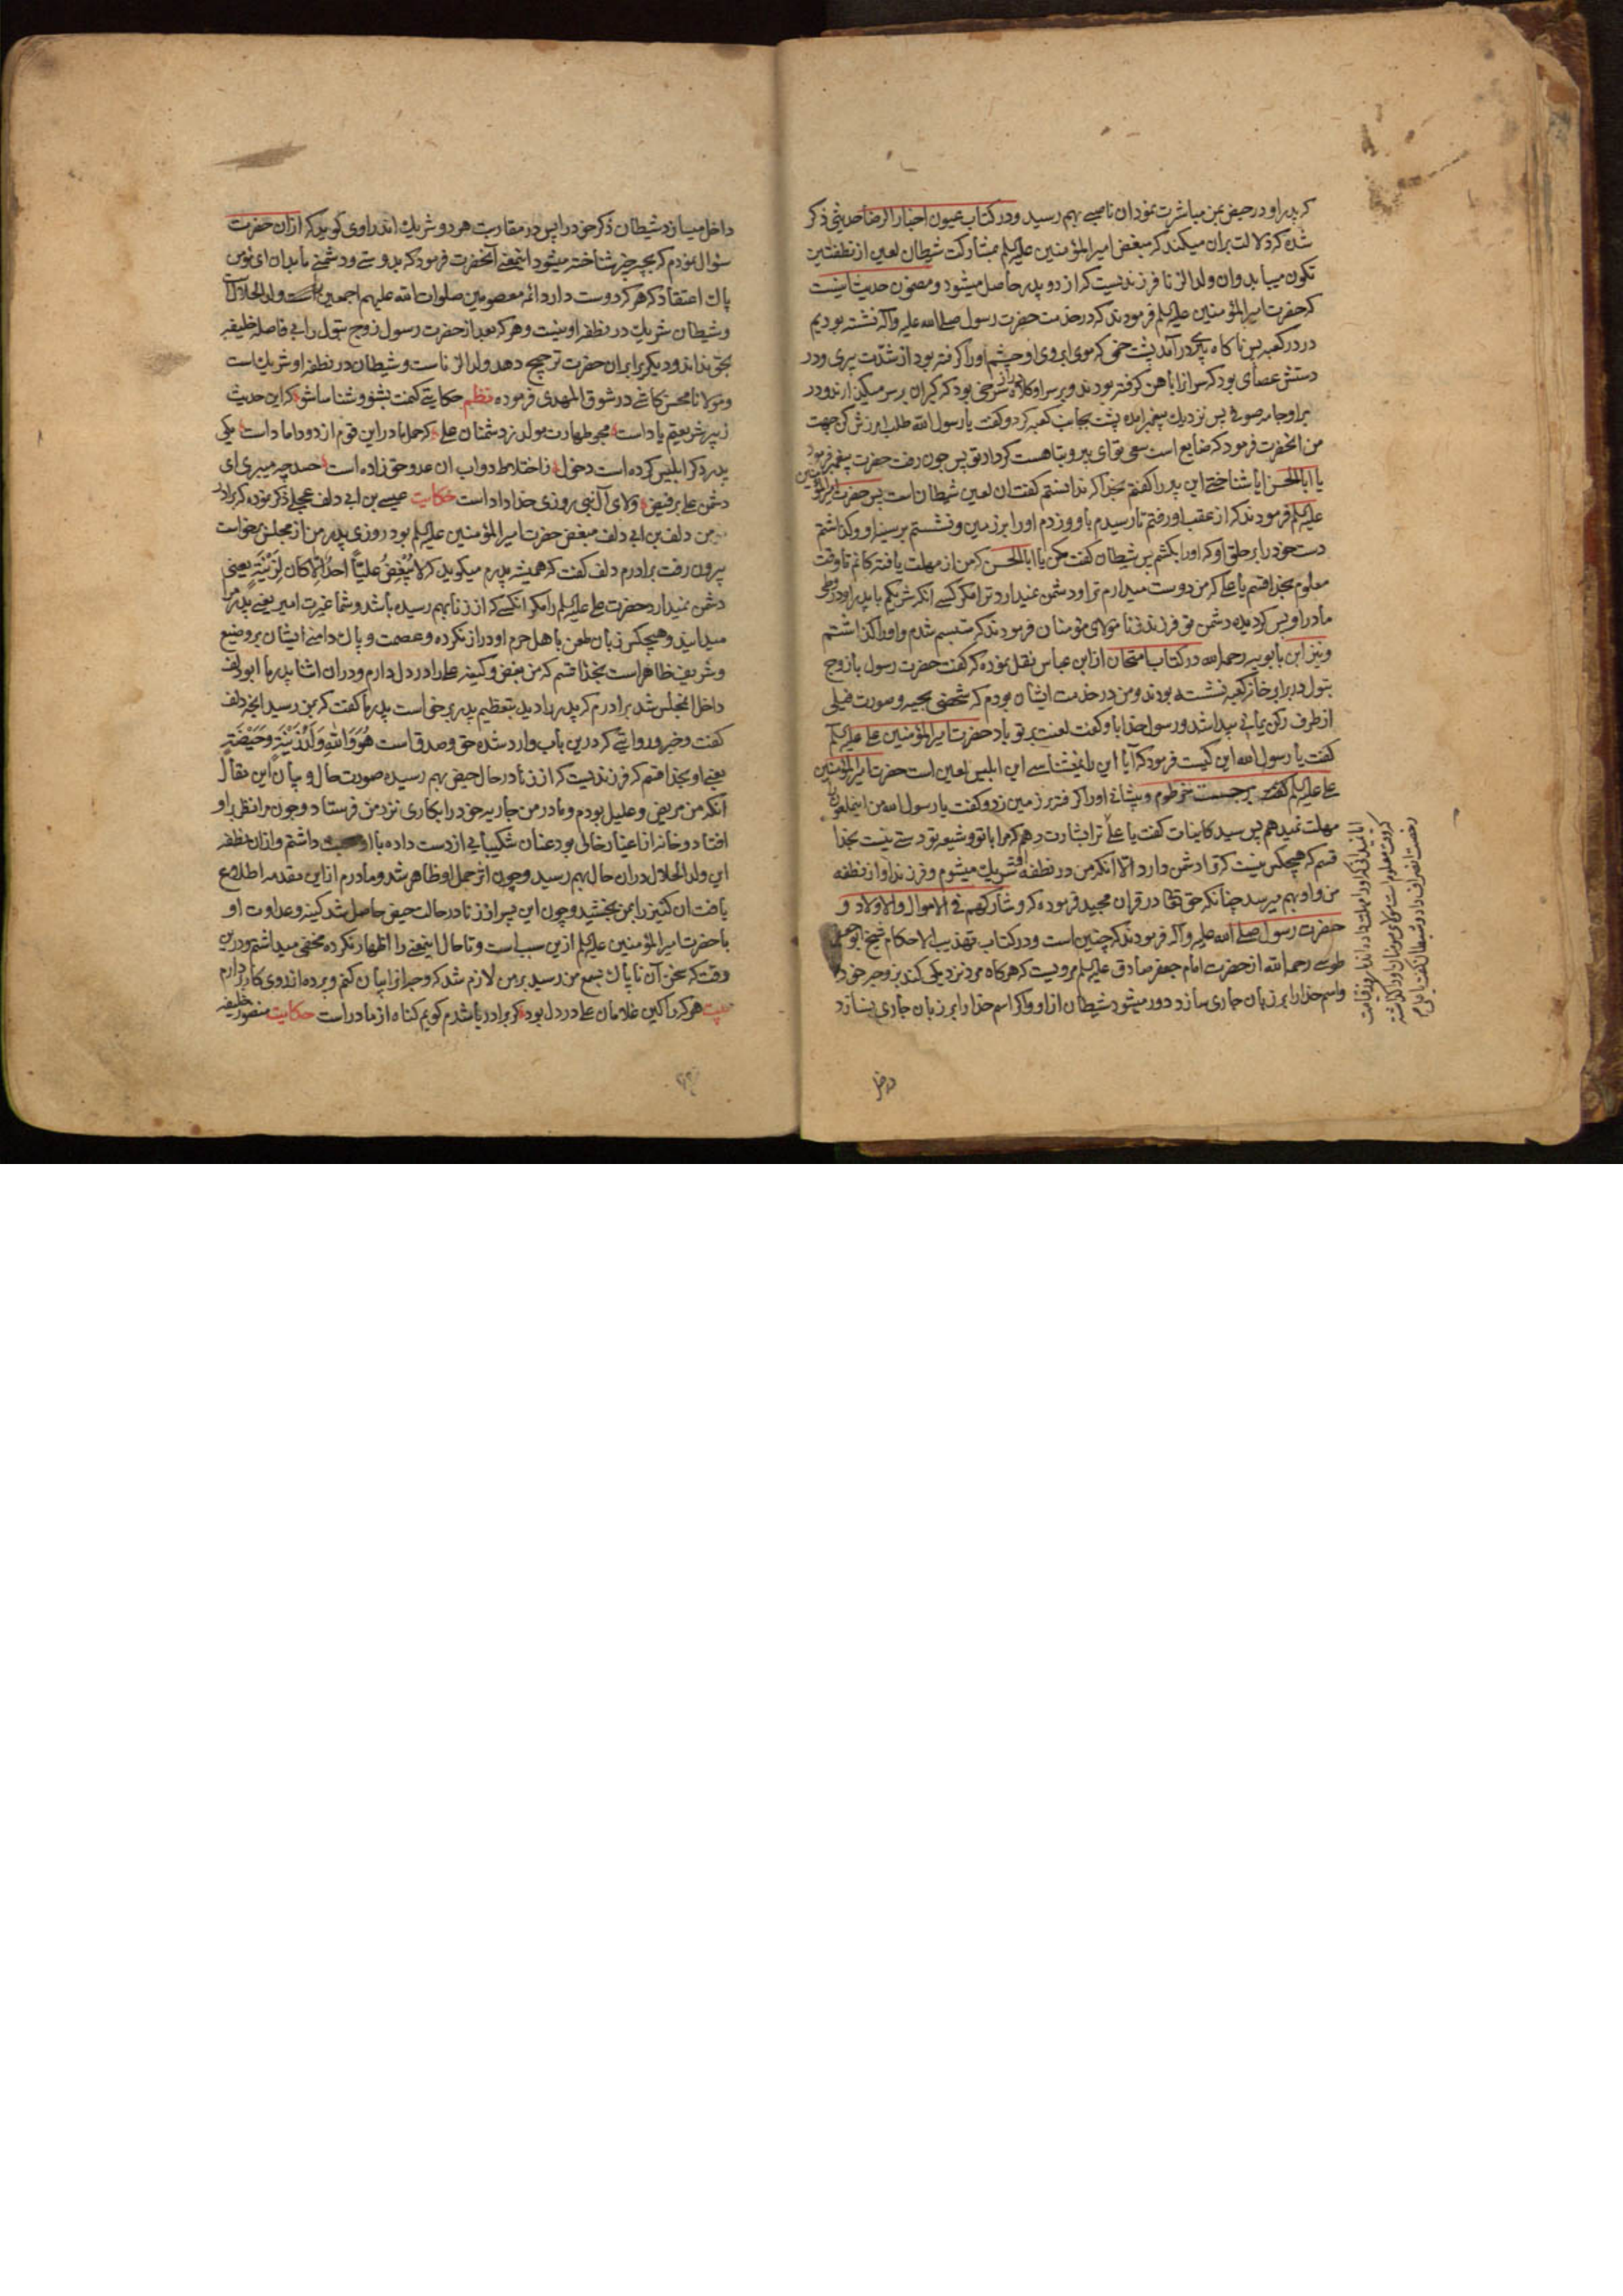 که پدر او در حیض بمن مباشرت نمود ان ناصبی بهم رسید و در کتاب عیون اخبار الرضا حدیثی ذکر
شده که دلالت بران میکند که مبغض امیرالمؤمنین علیه السلم بمشارکت شیطان لعین از نطفتین
تکون مییابد وان ولد الزنا فرزندیست که از دو پدر حاصل میشود و مضمون حدیث اینست
که حضرت امیرالمؤمنین علیه السلم فرمودند که در خدمت حضرت رسول صلی الله علیه واله نشسته بودیم
در در کعبه پس ناکاه پیری درامد پشت خمی که موی ابروی او چشم او را کرفته بود از شدت پیری و در
دستش عصای بود که سر انرا باهن کرفته بودند و بر سر او کلاه دراز سرخی بود که کبران بر سر میکذارند و در
بر او جامه صوفی پس نزدیک پیغمبر امده پشت بجانب کعبه کرد و کفت یا رسول الله طلب امرزش کن جهت
من انحضرت فرمود که ضایع است سعی تو ای پیر و تباهست کردار تو پس چون رفت حضرت پیغمبر فرمود
یا ابا الحسن ایا شناختی این پیر را کفتم بخدا که ندانستم کفت ان لعین شیطان است پس حضرت امیرالمؤمنین
علیه السلم فرمودند که از عقب او رفتم تا رسیدم باو و زدم او را بر زمین و نشستم بر سینه او و کذاشتم
دست خود را بر حلق او که او را بکشم پس شیطان کفت مکن یا ابا الحسن که من از مهلت یافته کانم تا وقت
معلوم بخدا قسم یا علی که من دوست میدارم ترا و دشمن نمیدارد ترا مکر کسی انکه شریکم با پدر او در وطی
مادر او پس کردیده دشمن تو فرزند زنا مولای مؤمنان فرمودند که متبسم شدم و او را کذاشتم
و نیز ابن بابویه رحمه الله در کتاب امتحان از ابن عباس نقل نموده که کفت حضرت رسول با زوج
بتول در برابر خانه کعبه نشسته بودند و من در خدمت ایشان بودم که شخصی مجیه و صورت فیلی
از طرف رکن یمانی پیدا شد و رسول خدا باو کفت لعنت بر تو باد حضرت امیرالمؤمنین علی علیه السلم
کفت یا رسول الله این کیست فرمود که آیا این را نمیشناسی این ابلیس لعین است حضرت امیرالمؤمنین
علی علیه السلم برجست خرطوم و پیشانی او را کرفته بر زمین زد و کفت یا رسول الله من اینملعون را
مهلت نمیدهم پس سید کاینات کفت یا علی ترا بشارت دهم که مرا با تو و شیعه تو دستی نیست بخدا
قسم که هیچکس نیست که ترا دشمن دارد الا آنکه من در نطفه او شریک میشوم و فرزند او از نطفه
من و او بهم میرسد چنانکه حق تعالی در قران مجید فرموده که و شارکهم فی الاموال والاولاد و
حضرت رسول صلی الله علیه واله فرمودند که چنین است و در کتاب تهذیب الاحکام شیخ ابو جعفر
طوسی رحمه الله از حضرت امام جعفر صادق علیه السلم مرویست که هرکاه مرد نزدیکی کند بزوجه خود
واسم خدا را بر زبان جاری سازد دور میشود شیطان از او و اکر اسم خدا را بر زبان جاری نسازد
داخل میسازد شیطان ذکر خود را پس در مقاربت هر دو شریک اند راوی کوید که از ان حضرت
سؤال نمودم که بچه چیز شناخته میشود اینمعنی آنحضرت فرمود که بدوستی و دشمنی ما بدان ای مؤمن
پاک اعتقاد که هرکه دوست دارد ائمه معصومین صلوات الله علیهم اجمعین را ولد الحلال است
و شیطان شریک در نطفه او نیست و هرکه بعد از حضرت رسول زوج بتول را بی فاصله خلیفه
بحق نداند و دیکری را بر ان حضرت ترجیح دهد ولد الزناست و شیطان در نطفه او شریک است
و مولانا محسن کاشی در شوق المهدی فرموده نظم حکایتی کنمت بشنو و شناسا باش که این حدیث
ز پیر شریعتم یاد است مجو طهارت مولد ز دشمنان علی که حمل مادر این قوم از دو داماد است یکی
پدر دکر ابلیس کرده است دخول ز اختلاط دو اب ان عدو حق زاده است حسد چه میبری ای
دشمن علی بر فیض ولای آل نبی روزی خداداد است حکایت عیسی بن ابی دلف عجلی ذکر نموده که برادر
من دلف بن ابی دلف مبغض حضرت امیرالمؤمنین علیه السلم بود روزی پدر من از مجلس برخواست
بیرون رفت برادرم دلف کفت که همیشه پدرم میکوید که لا یبغض علیا احد الا کان لزنیة یعنی
دشمن نمیدارد حضرت علی علیه السلم را مکر انکسی که از زنا بهم رسیده باشد و شما غیرت امیر یعنی پدر مرا
میدانید و هیچکس زبان طعن باهل حرم او دراز نکرده و عصمت و پاک دامنی ایشان بر وضیع
و شریف ظاهر است بخدا قسم که من بغض و کینه علی را در دل دارم و در ان اثنا پدر ما ابودلف
داخل انمجلس شد برادرم که پدر را دید بتعظیم پدر برخواست پدر ما کفت که بمن رسید انچه دلف
کفت و خبر و روایتی که درین باب وارد شده حق و صدق است هو والله لزنیة وحیضة
یعنی او بخدا قسم که فرزندیست که از زنا در حال حیض بهم رسیده صورت حال و بیان این مقال
آنکه من مریض و علیل بودم و مادر من جاریه خود را بکاری نزد من فرستاد و چون مرا نظر بر او
افتاد و خانه از اغیار خالی بود عنان شکیبایی از دست داده با او داشتم و ازان نطفه
این ولد الحلال دران حال بهم رسید و چون اثر حمل او ظاهر شد و مادرم ازاین مقدمه اطلاع
یافت ان کنیز را بمن بخشید و چون این پسر از زنا در حالت حیض حاصل شد کینه و عداوت او
با حضرت امیرالمؤمنین علیه السلم ازین سبب است و تا حال اینمعنی را اظهار نکرده مخفی میداشتم و درین
وقت که سخن آن ناپاک بسمع من رسید بر من لازم شد که وجه انرا بیان کنم و پرده از روی کار بردارم
بیت هر کرا کین غلامان علی در دل بود کر برادر باشدم کویم کناه از مادر است حکایت منصور خلیفه